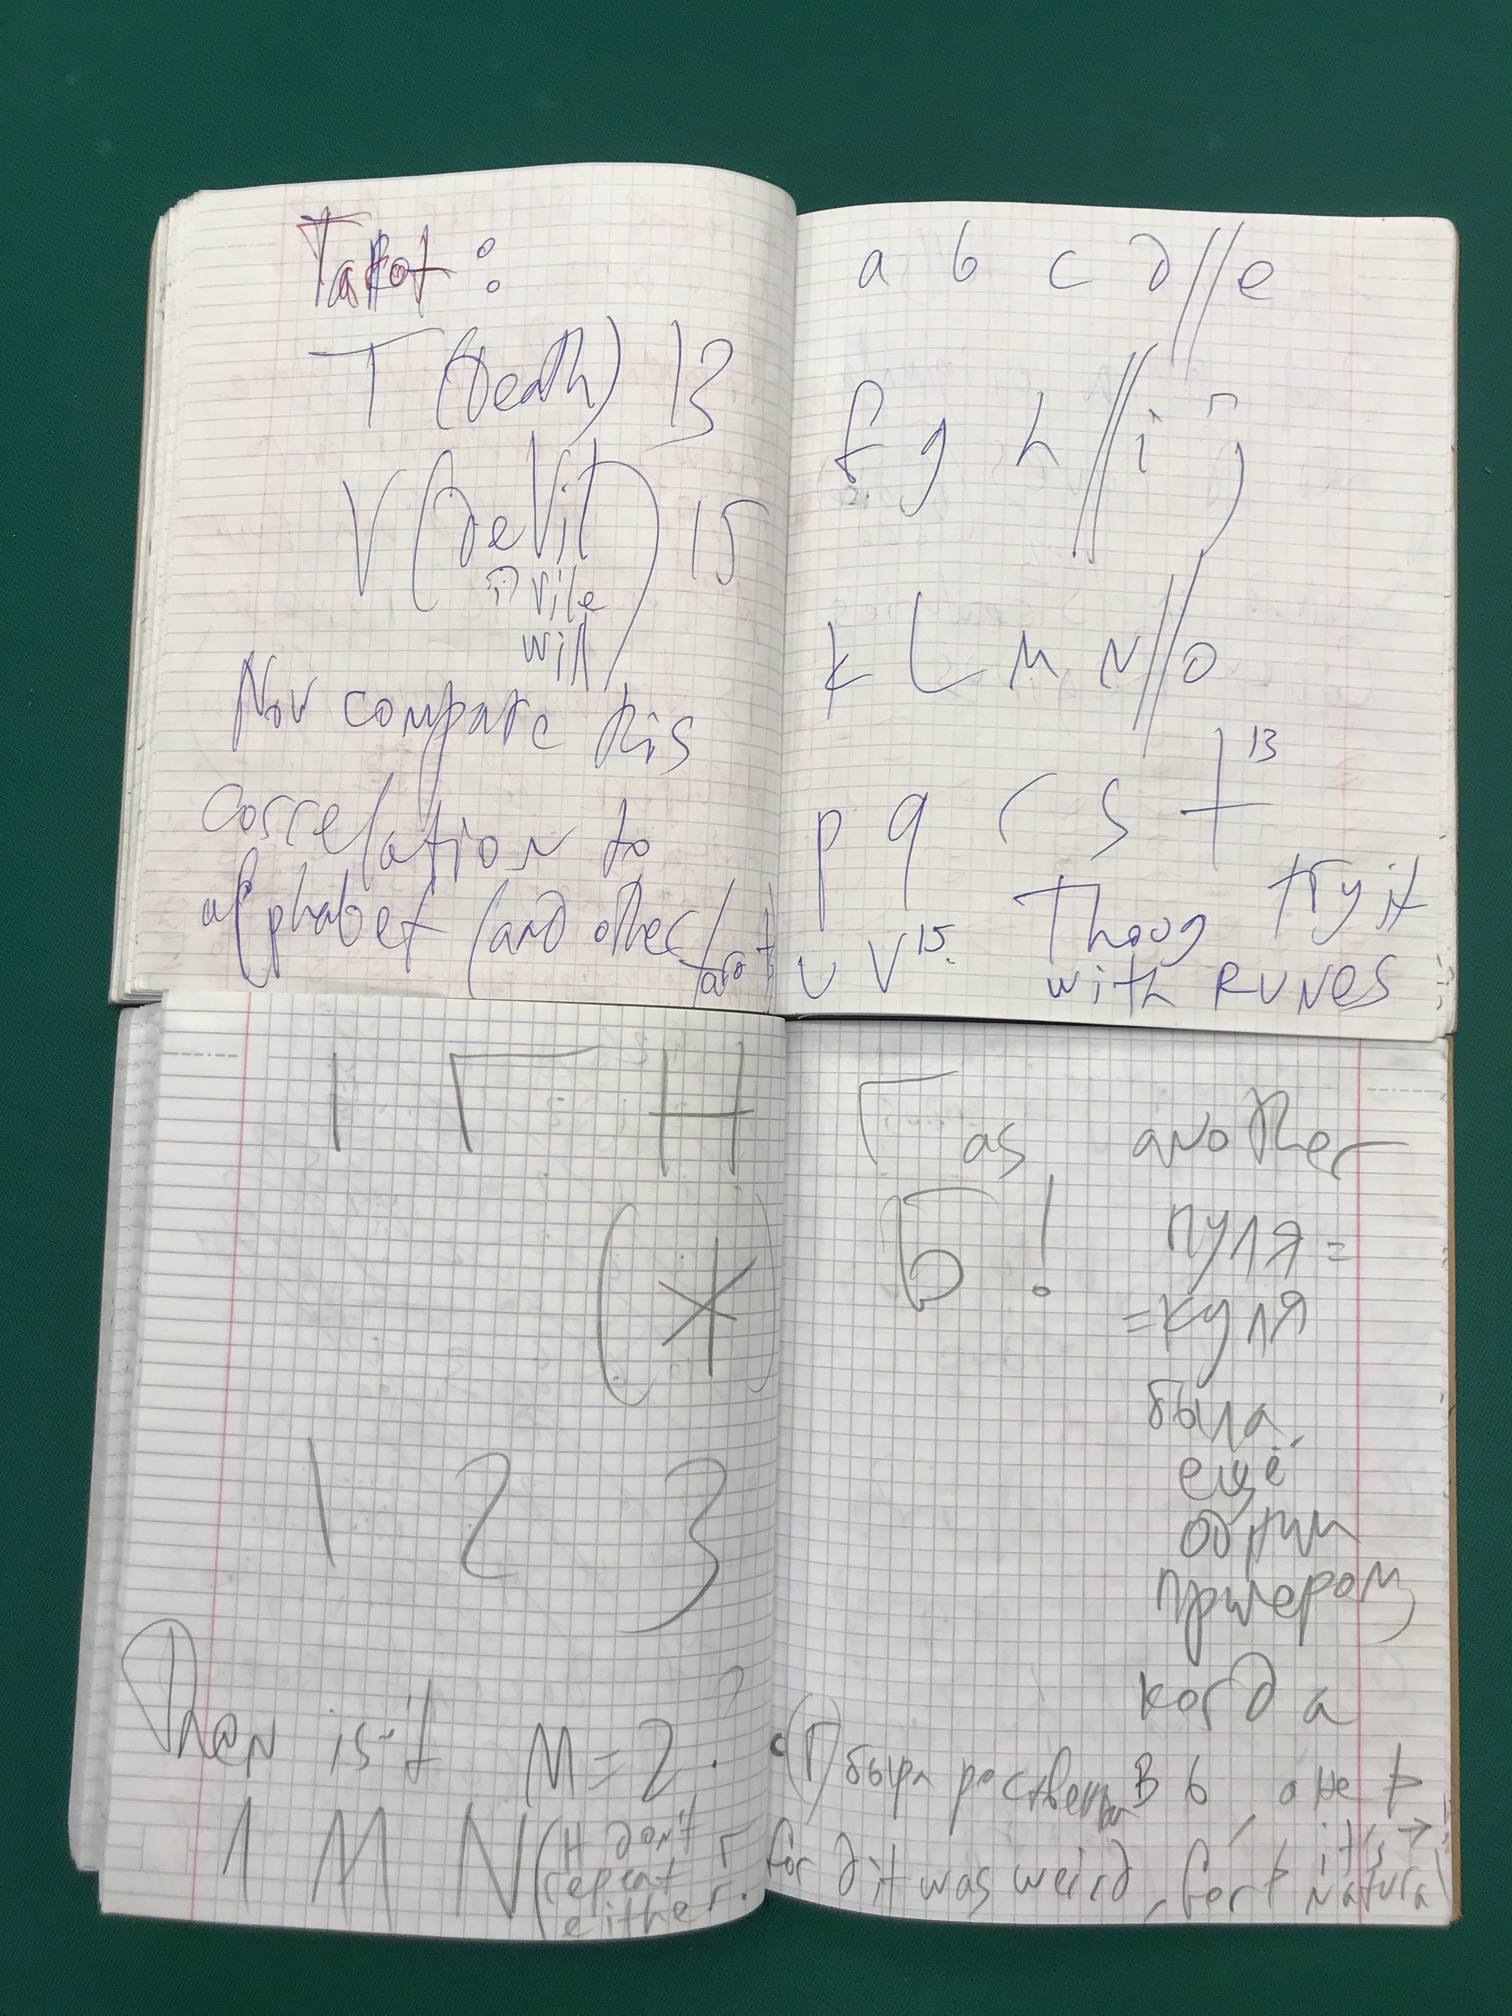 Tarot:
T (Death) 13
V (deVil) 15
vile
will
Now compare this
correlation to
alphabet (and other tarot
a b c d // e
f g h // i j
k L m N // o
p q r s t 13
u V 15. Thoug try it
with RUNES
1 Г H
(*)
1 2 3
Then isn't M = 2 ?
1 M N (H don't
repeat Г
either.
Г as another
Б !
пуля =
= куля
была
ещё
одним
примером
когда
(П) была В b, а не p
for d it was weird, for t it's →
natural